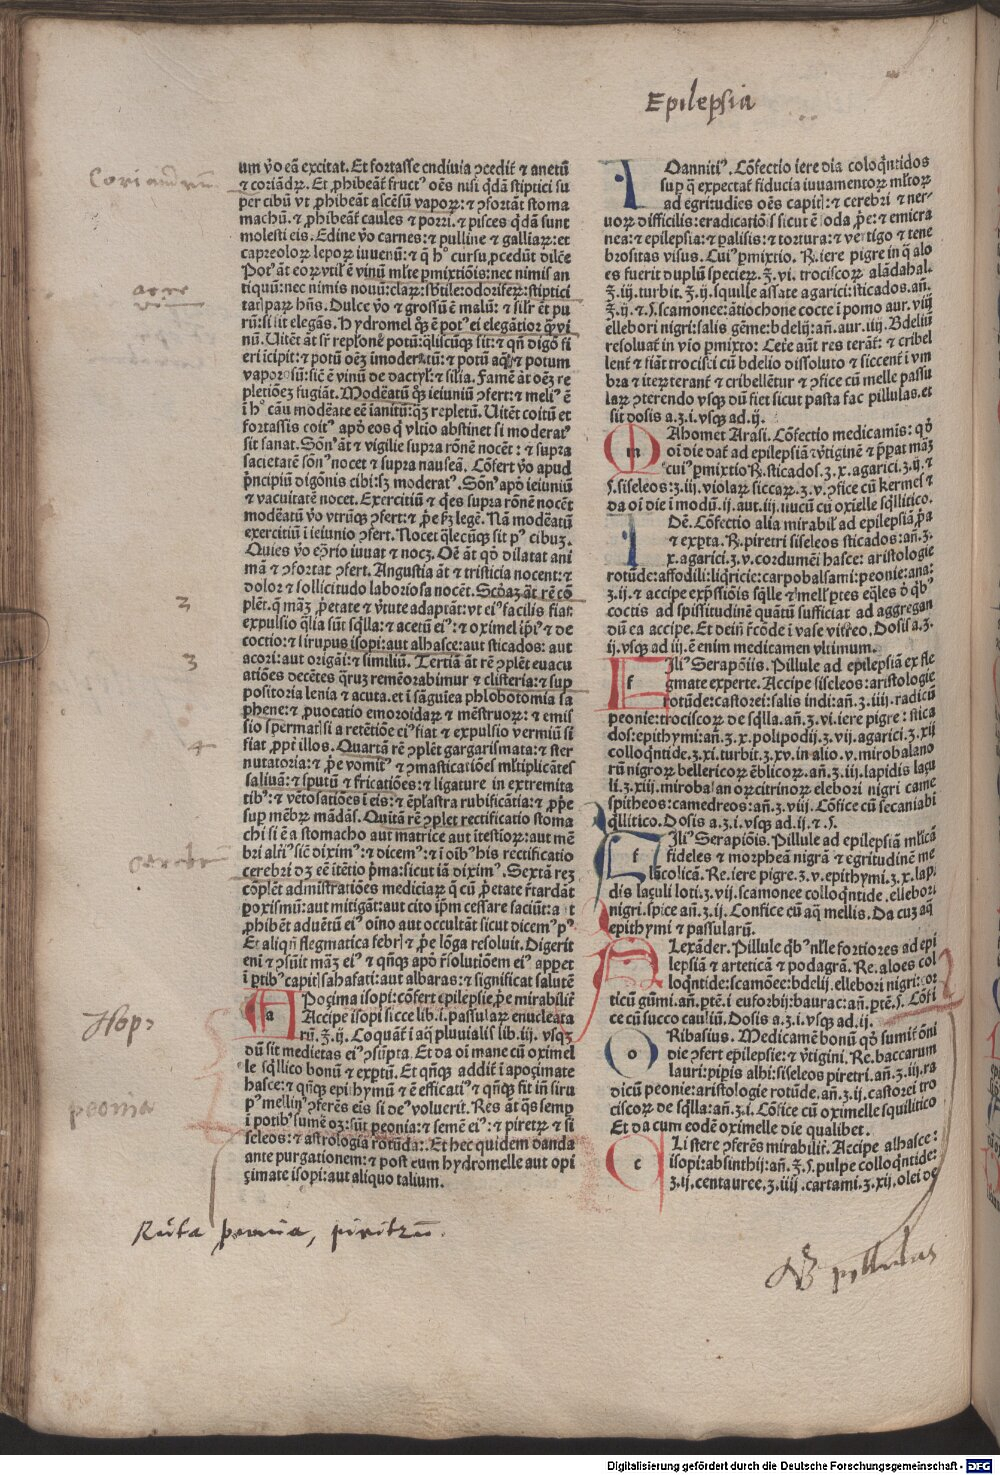 Epilepsia
um ṽo eã excitat. Et fortasse endiuia ꝯcedit̃ ⁊ anetũ
⁊ coriãdꝝ. Et ꝓhibeãt fructꝰ oẽs nisi q̃dã stiptici su
per cibũ vt ꝓhibeãt ascẽsũ vaporꝝ: ⁊ ꝯfortãt stoma
machũ. ⁊ ꝓhibeãt caules ⁊ porri. ⁊ pisces q̃dã sunt
molesti eis. Edine ṽo carnes: ⁊ pulline ⁊ galliaꝝ: et
capreoloꝝ lepoꝝ iuuenũ: ⁊ q̃ hñt cursu ꝓcedũt dilẽe
tiquũ: nec nimis nouũ: claꝝ: sb̃tile: odoriferꝝ: stiptici
rũ: si sit elegãs. Hydromel q̃ꝫ ẽ potꝰ ei elegãtior q̃ꝫ vi
vaporosũ: sic̃ ẽ vinũ de dactyl̃: ⁊ silia. Famẽ ãt oẽꝫ re
pletiõeꝫ fugiãt. Modẽatũ q̃ꝫ ieiuniũ ꝯfert: ⁊ meliꝰ ẽ
fortassis coitꝰ apd̾ eos q̃ vltio abstinet si moderatꝰ
sit sanat. Sõnꝰ ãt ⁊ vigilie supra rõnẽ nocẽt: ⁊ supra
sacietatẽ sõnꝰ nocet ⁊ supra nauseã. Cõfert ṽo apud
pñcipiũ digõnis cibi: sꝫ moderatꝰ. Sõnꝰ apd̾ ieiuniũ
⁊ vacuitatẽ nocet. Exercitiũ ⁊ q̃es supra rõnẽ nocẽt
modẽatũ ṽo vtrũq̃ꝫ ꝯfert: ⁊ ꝓ̃e fꝫ legẽ. Nã modẽatũ
exercitiũ i ieiunio ꝯfert. Nocet q̃lecũq̃ꝫ sit pꝰ cibuꝫ.
Quies ṽo eb̾rio iuuat ⁊ nocꝫ. Oẽ ãt qd̾ dilatat ani
mã ⁊ ꝯfortat ꝯfert. Angustia ãt ⁊ tristicia nocent: ⁊
dolor ⁊ sollicitudo laboriosa nocẽt. Scd̾aꝫ ãt rẽ cõ
plẽt. q̃ mãꝫ ꝓ̃etate ⁊ ṽtute adaptãt: vt eiꝰ facilis fiat
expulsio q̃lia sũt sq̃lla: ⁊ acetũ eiꝰ: ⁊ oximel ip̃iꝰ ⁊ de
coctio: ⁊ sirupus isopi: aut alhasce: aut sticados: aut
acori: aut origãi: ⁊ similiũ. Tertiã ãt rẽ ꝯplẽt euacu
atiões decẽtes q̃ruꝫ remẽorabimur ⁊ clisteria: ⁊ sup
positoria lenia ⁊ acuta. et i sãguiea phlobotomia sa
phene: ⁊ ꝓuocatio emoroidaꝝ ⁊ mẽstruoꝝ: ⁊ emis
sio spermatꝭ si a retẽtiõe eiꝰ fiat ⁊ expulsio vermiũ si
fiat ꝓpt̃ illos. Quartã rẽ ꝯplẽt gargarismata: ⁊ ster
nutatoria: ⁊ ꝓ̃e vomitꝰ ⁊ ꝯmasticatiões ml̃tiplicãtes
saliuã: ⁊ sputũ ⁊ fricatiões: ⁊ ligature in extremita
tibꝰ: ⁊ vẽtosatiões i eis: ⁊ ẽpl̃astra rubificãtia: ⁊ ꝓp̃e
sup mẽbꝝ mãdãs. Quitã rẽ ꝯplet rectificatio stoma
chi si ẽ a stomacho aut matrice aut ĩtestioꝝ: aut mẽ
bri alt̾iꝰ sic̃ diximꝰ: ⁊ dicemꝰ: ⁊ i oĩbꝰ his rectificatio
cerebri dꝫ eẽ ĩtẽtio p̃ma: sicut iã diximꝰ. Sextã reꝫ
cõplẽt admĩstratiões mediciaꝝ q̃ cũ ꝓ̃etate r̃tardãt
ꝑoxismũ: aut mitigãt: aut cito ip̃m cessare faciũt: a t
ꝓhibẽt aduẽtũ eiꝰ oĩno aut occultãt sicut dicemꝰ pꝰ
Et aliqñ flegmatica febrꝭ ⁊ ꝓ̃e lõga resoluit. Digerit
enĩ ⁊ ꝯsũit mãꝫ eiꝰ ⁊ qñq̃ꝫ apd̾ r̃solutiõem eiꝰ apꝑet
i ꝑtibꝰ capitꝭ sahafati: aut albaras: ⁊ significat salutẽ
Apoçima isopi: cõfert epilepsie ꝓ̃e mirabilit̃
Accipe isopi sicce lib. i. passulaꝝ enucleata
rũ. ℥. ij. Coquãt̃ i aq̃ pluuialiſ lib. iij. vsq̃ꝫ
dũ sit medietas eiꝰ ꝯsũpta. Et da oi mane cũ oximel
le sq̃llico bonũ ⁊ exꝑtũ. Et qñq̃ꝫ addit̃ i apoçimate
hasce: ⁊ qñq̃ꝫ epithymũ ⁊ ẽ efficatiꝰ ⁊ qñq̃ꝫ fit in siru
pꝰ mellinꝰ ꝯferẽs eis si deꝰ voluerit. Res ãt q̃s semꝑ
i potibꝰ sumẽ oꝫ: sũt peonia: ⁊ semẽ eiꝰ: ⁊ piretꝝ ⁊ si
seleos: ⁊ astrologia rotũda: Et hec quidem danda
ante purgationem: ⁊ post cum hydromelle aut opi
çimate isopi: aut aliquo talium.
IOannitiꝰ. Cõfectio iere dia coloq̃ntidos
sup q̃ expectat̃ fiducia iuuamentoꝝ ml̃toꝝ
ad egritudies oẽs capitꝭ: ⁊ cerebri ⁊ ner-
uoꝝ difficilis: eradicatiõis sicut ẽ soda ꝓ̃e: ⁊ emicra
nea: ⁊ epilepsia: ⁊ ꝑalisis: ⁊ tortura: ⁊ vertigo ⁊ tene
brositas visus. Cuiꝰ ꝑmixtio. ℞. iere pigre in q̃ alo
es fuerit duplũ specieꝝ. ℥. vi. trociscoꝝ alãdahal.
℥. iij. turbit. ℥. ij. squille assate agarici: sticados. añ.
℥. ij. ⁊. ſ. scamonee: ãtiochone cocte i pomo aur. viij
ellebori nigri: salis gẽme: bdelij: añ. aur. iiij. Bdeliũ
resoluat̃ in vio ꝑmixto: Cete aũt res terãt̃: ⁊ cribel
lent̃ ⁊ fiãt trocisci cũ bdelio dissoluto ⁊ siccent̃ i vm
bra ⁊ iteꝝ terant̃ ⁊ cribellẽtur ⁊ ꝯfice cũ melle passu
laꝝ ꝯterendo vsq̃ꝫ dũ fiet sicut pasta fac pillulas. et
sit dosis a. ʒ. i. vsq̃ꝫ ad. ij.
MAhomet Arasi. Cõfectio medicamis: qd̾
oi die dat̃ ad epilepsiã ṽtiginẽ ⁊ p̃ꝑat mãꝫ
cuiꝰ ꝑmixtio ℞. sticados. ʒ. x. agarici. ʒ. ij. ⁊
ſ. siseleos: ʒ. iij. violaꝝ siccaꝝ. ʒ. v. ꝯfice cũ kermes ⁊
da oi die i modũ. ij. aut. iij. nucũ cũ oxĩelle sq̃llitico.
IDẽ. Cõfectio alia mirabil̃ ad epilepsiã ꝓ̃a
⁊ expta. ℞. piretri siseleos sticados: añ. ʒ.
x. agarici. ʒ. v. cordumẽi hasce: aristologie
rotũde: affodili: liq̃ricie: carpobalsami: peonie: ana:
ʒ. ij. ⁊ accipe exp̃ssiõis sq̃lle ⁊ mell̃ ꝑtes eq̃les d̾ q̃bꝰ
coctis ad spissitudinẽ quãtũ sufficiat ad aggregan
dũ ea accipe. Et deĩñ r̃cõde i vase vitreo. Dosis a. ʒ.
ij. vsq̃ꝫ ad. iij. ẽ enim medicamen vltimum.
FIliꝰ Serapõiis. Pillule ad epilepsiã ex fle
gmate experte. Accipe siseleos: aristologie
rotũde: castorei: salis indi: añ. ʒ. iij. radicũ
peonie: trociscoꝝ de sq̃lla. añ. ʒ. vi. iere pigre: stica
dos: epithymi: añ. ʒ. x. polipodij. ʒ. vij. agarici. ʒ. xij
colloq̃ntide. ʒ. xi. turbit. ʒ. xv. in alio. v. mirobalano
rũ nigroꝝ bellericoꝝ ẽblicoꝝ. añ. ʒ. iij. lapidis laçu
li. ʒ. xiij. mirobalanoꝝ citrinoꝝ elebori nigri came
spitheos: camedreos: añ. ʒ. viij. Cõfice cũ secaniabi
q̃llitico. Dosis a. ʒ. i. vsq̃ꝫ ad. ij. ⁊. ſ.
FIliꝰ Serapiõis. Pillule ad epilepsiã ml̃ticã
fideles ⁊ morpheã nigrã ⁊ egritudinẽ me
lãcolicã. Re. iere pigre. ʒ. v. epithymi. ʒ. x. lapi
dis laçuli loti. ʒ. vij. scamonee colloq̃ntide. ellebori
nigri. spice añ. ʒ. ij. Confice cũ aq̃ mellis. Da cuꝫ aq̃
epithymi ⁊ passularũ.
ALexãder. Pillule q̃bꝰ nl̃le fortiores ad epi
lepsiã ⁊ arteticã ⁊ podagrã. Re. aloes col
loq̃ntide: scamõee: bdelij. ellebori nigri: cor
ticũ gũmi. añ. ꝑtẽ. i euforbij: baurac: añ. ꝑtẽ. ſ. Cõfi
ce cũ succo cauliũ. Dosis a. ʒ. i. vsq̃ꝫ ad. ij.
ORibasius. Medicamẽ bonũ qd̾ sumit̃ õni
die ꝯfert epilepsie: ⁊ ṽtigini. Re. baccarum
lauri: pipis albi: siseleos piretri. añ. ʒ. iij. ra
dicũ peonie: aristologie rotũde. añ. ʒ. ij. castorei tro
ciscoꝝ de sq̃lla: añ. ʒ. i. Cõfice cũ oximelle squilitico
Et da cum eodẽ oximelle die qualibet.
CListere ꝯferẽs mirabilit̃. Accipe alhasce:
isopi: absinthij: añ. ℥. ſ. pulpe colloq̃ntide:
ʒ. ij. centauree. ʒ. iiij. cartami. ʒ. xij. olei de
Coriandrũ
2
3
4
cerebr
Hopꝰ
peonia
Ruta peonia, piritrũ.
pillulas
Digitalisierung gefördert durch die Deutsche Forschungsgemeinschaft - DFG